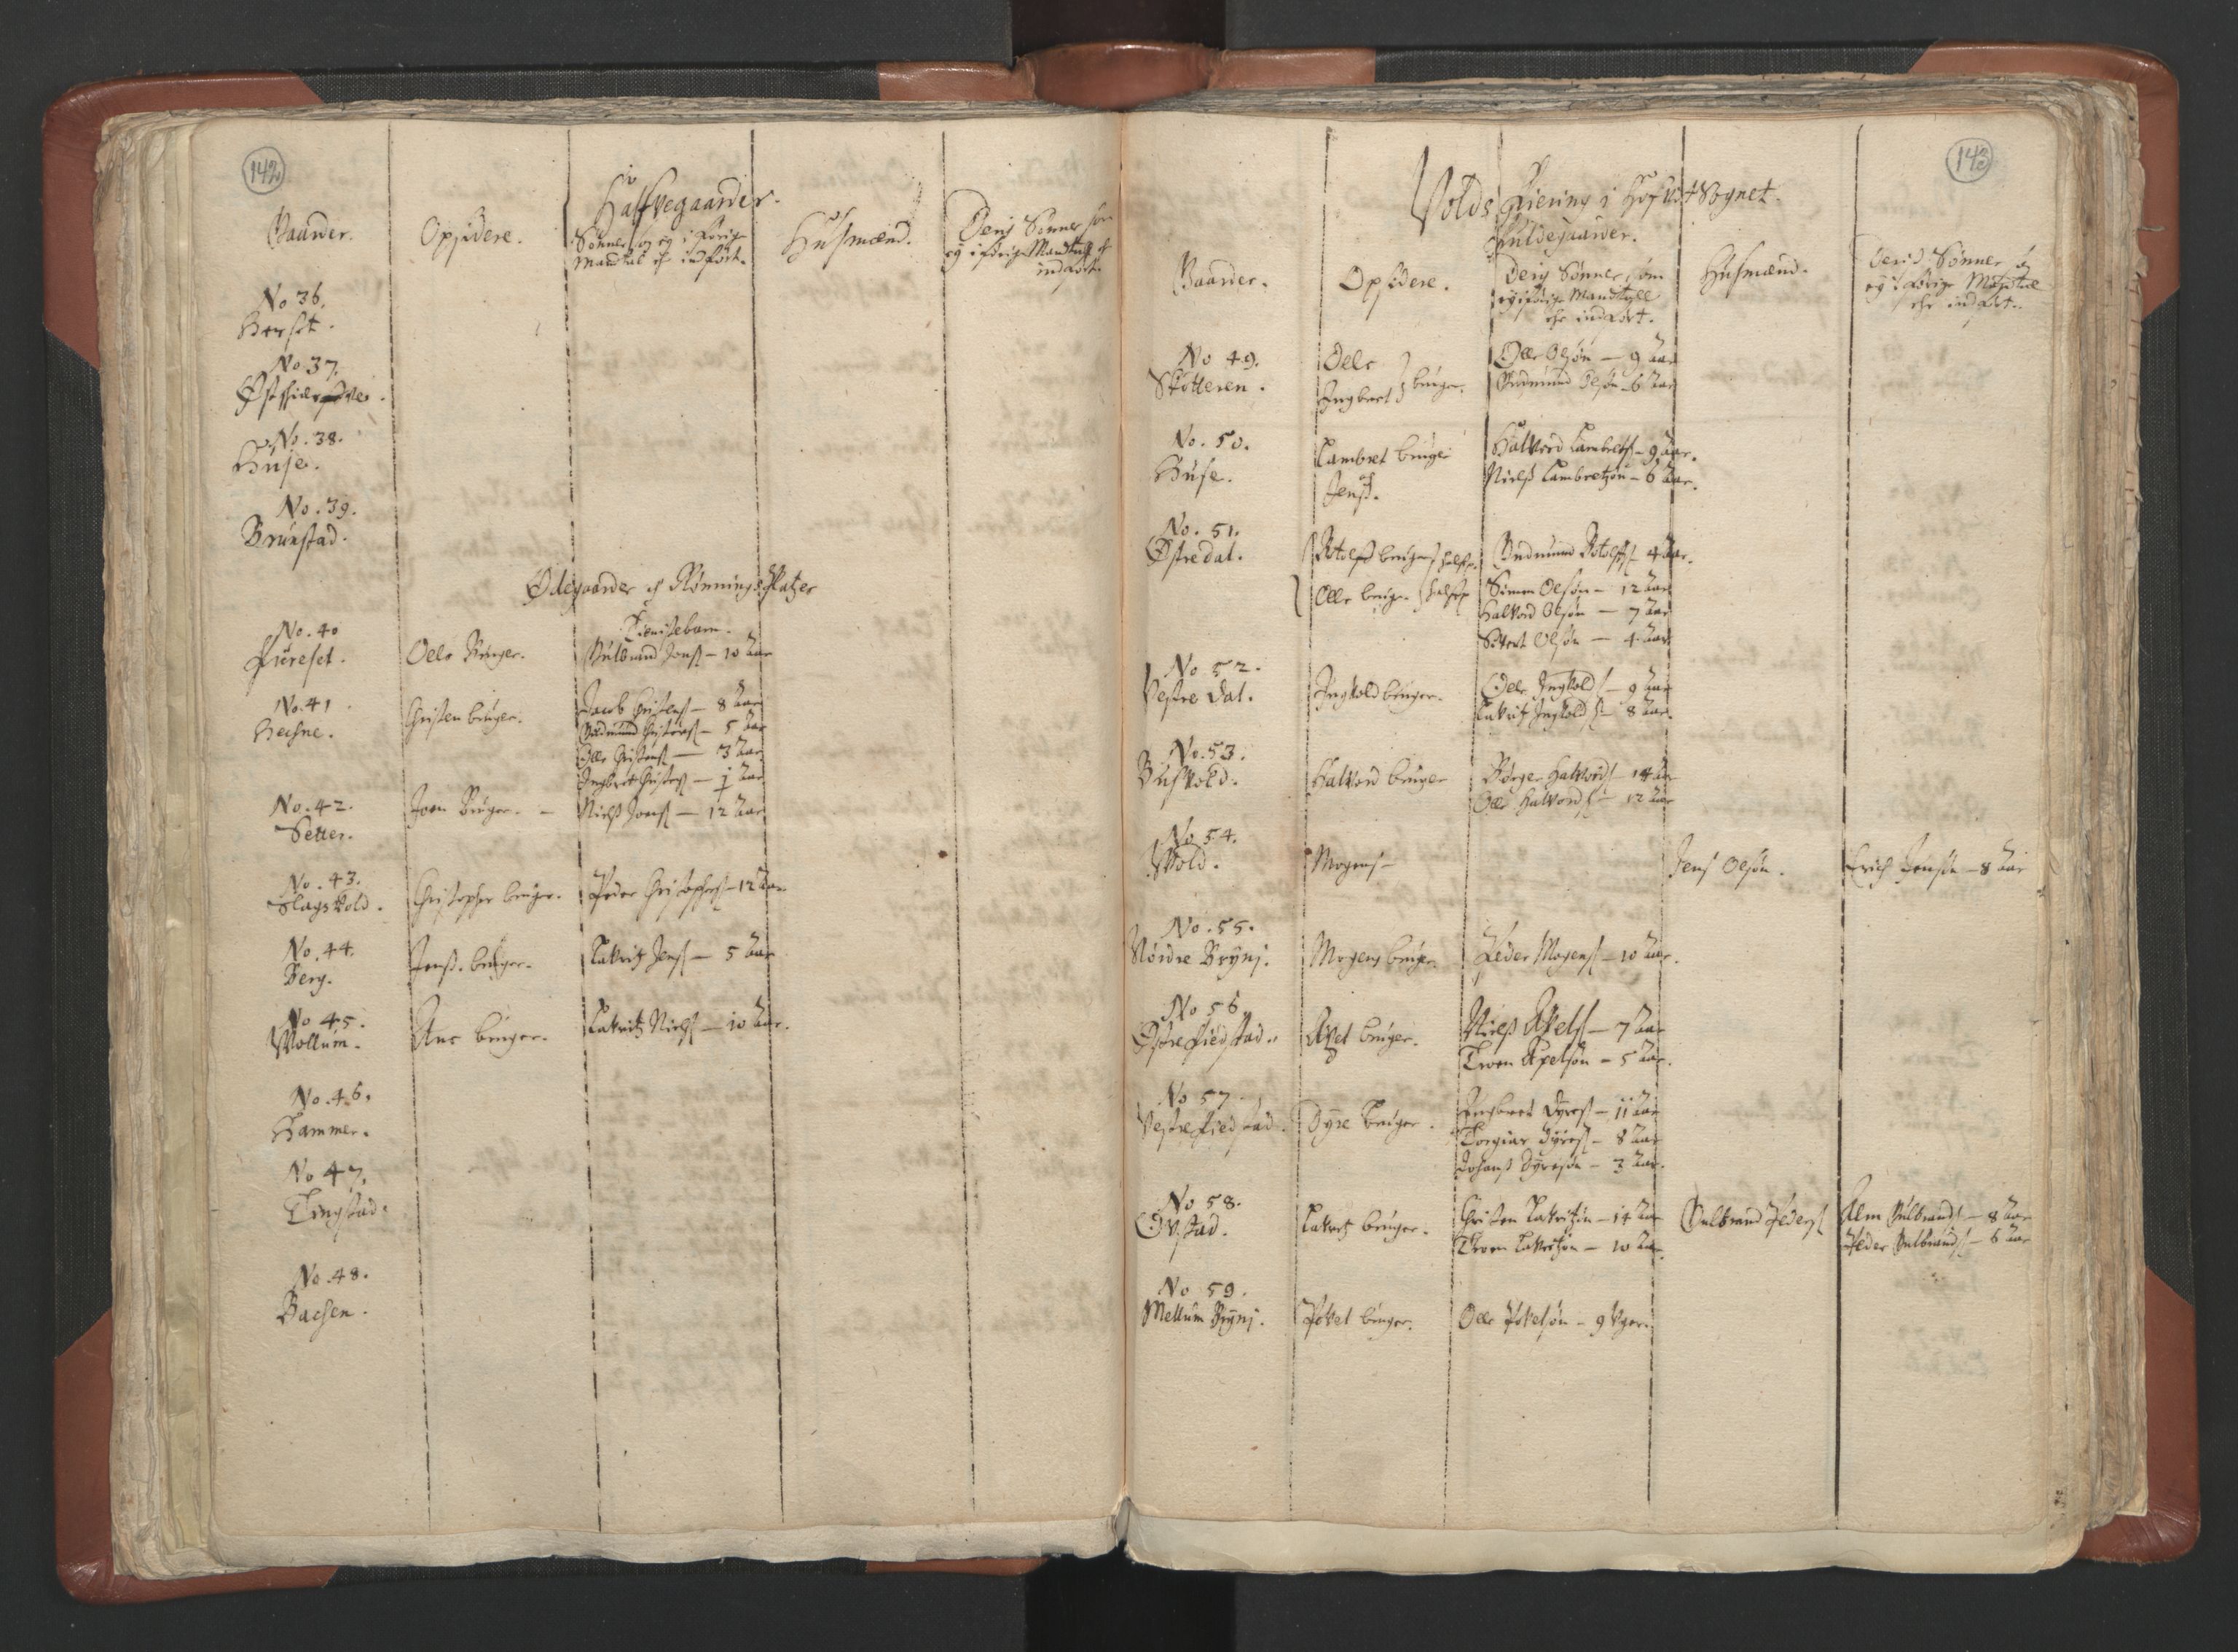 142
Halfvegaarder.
Gaarder.
Opsidere.
Sønner som ey i forige
Mandtal er indført.
Husmænd.
Deris Sønner som
ey i forige Mandtall er
indført.
No 36.
Herset.
No 37.
No. 38.
Huse.
No. 39.
Brunstad.
Ødegaarder och Rønnings Platzer
Tienistebarn.
No. 40
Fureset.
Oele Bruger.
Gulbrand Jons - 10 Aar
No. 41
Hechne.
Christen bruger.
Jacob Christens - 8 Aar
Gudmund Christens - 5 Aar
Olle Christens - 3 Aar
Ingbret Christens - 1 Aar
No. 42.
Setter.
Joen Bruger. -
Nielss Joens - 12 Aar
No. 43.
Slagsvold.
Christopher bruger.
Peder Christophers - 12 Aar
No. 44.
Berg.
Jenss. bruger.
Lavritz Jens - 5 Aar
No 45.
Wollum.
Ane bruger.
Lavritz Niels - 10 Aar.
No. 46.
Hammer.
No 47.
Tingstad.
No. 48.
Bachen.
143
Volds Fiering i Hofvit Sognet.
Fuldegaarder.
Gaarder.
Opsidere.
Deris Sønner som
ey i forige Mandtall
ehr indført.
Husmænd.
Deris Sønner som
ey i forige Mandtal
ehr indført.
No 49.
Skotteren.
Oele
Ingbret } bruger.
Olle Olsøn - 9 Aar
Gudmund Olsøn - 6 Aar
No. 50.
Huse.
Lambret bruger
och
Jenss.
Halvord Lambrets - 9 Aar.
Nielss Lambretsøn - 6 Aar.
No. 51.
Østre dal.
Rolf bruger halfp.
Olle bruger halfp.
Gudmund Rolfs 4 Aar.
Simen Olsøn - 12 Aar
Halvord Olsøn - 7 Aar
Sivert Olsøn - 4 Aar
No 52.
Vestre dal.
Ingvold bruger.
Olle Ingvolds - 9 Aar
Lavritz Ingvolds - 8 Aar.
No. 53.
Halvord bruger
Børger Halvords - 14 Aar
Olle Halvords - 12 Aar
No 54.
Wold.
Mogens -
Jens Olsøn.
Erich Jensøn - 8 Aar
No. 55.
Nordre Brynj.
Mogens bruger.
Peder Mogens - 10 Aar.
No 56
Østre Fiedstad.
Axel bruger.
Nielss Axels - 7 Aar
Troen Axelsøn - 5 Aar.
No 57.
Vestre Fiedstad.
Dyre bruger.
Ingbret Dyres - 11 Aar
Torgiur Dyres - 8 Aar
Johans Dyresøn - 3 Aar.
No 58.
Ovstad.
Lavritz bruger.
Christen Lavritzøn - 14 Aar
Troen Lavritzøn - 10 Aar
Gulbrand Peders
Alm Gulbrands - 8 Aar
Peder Gulbrands - 6 Aar
No 59.
Mellum Brynj.
Povel bruger.
Olle Povelsøn - 9 Uger.